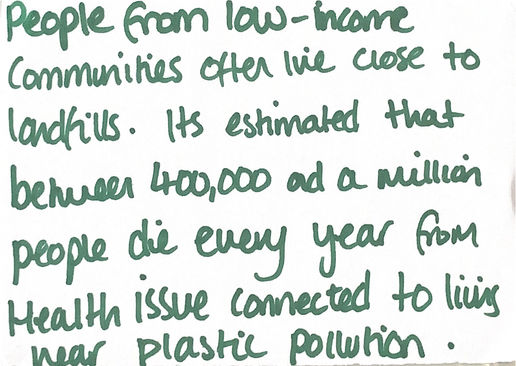 People from low-income
Communities often live close to
landfills. Its estimated that
between 400,000 ad a million
people die every year from
Health issue connected to living
near plastic pollution.